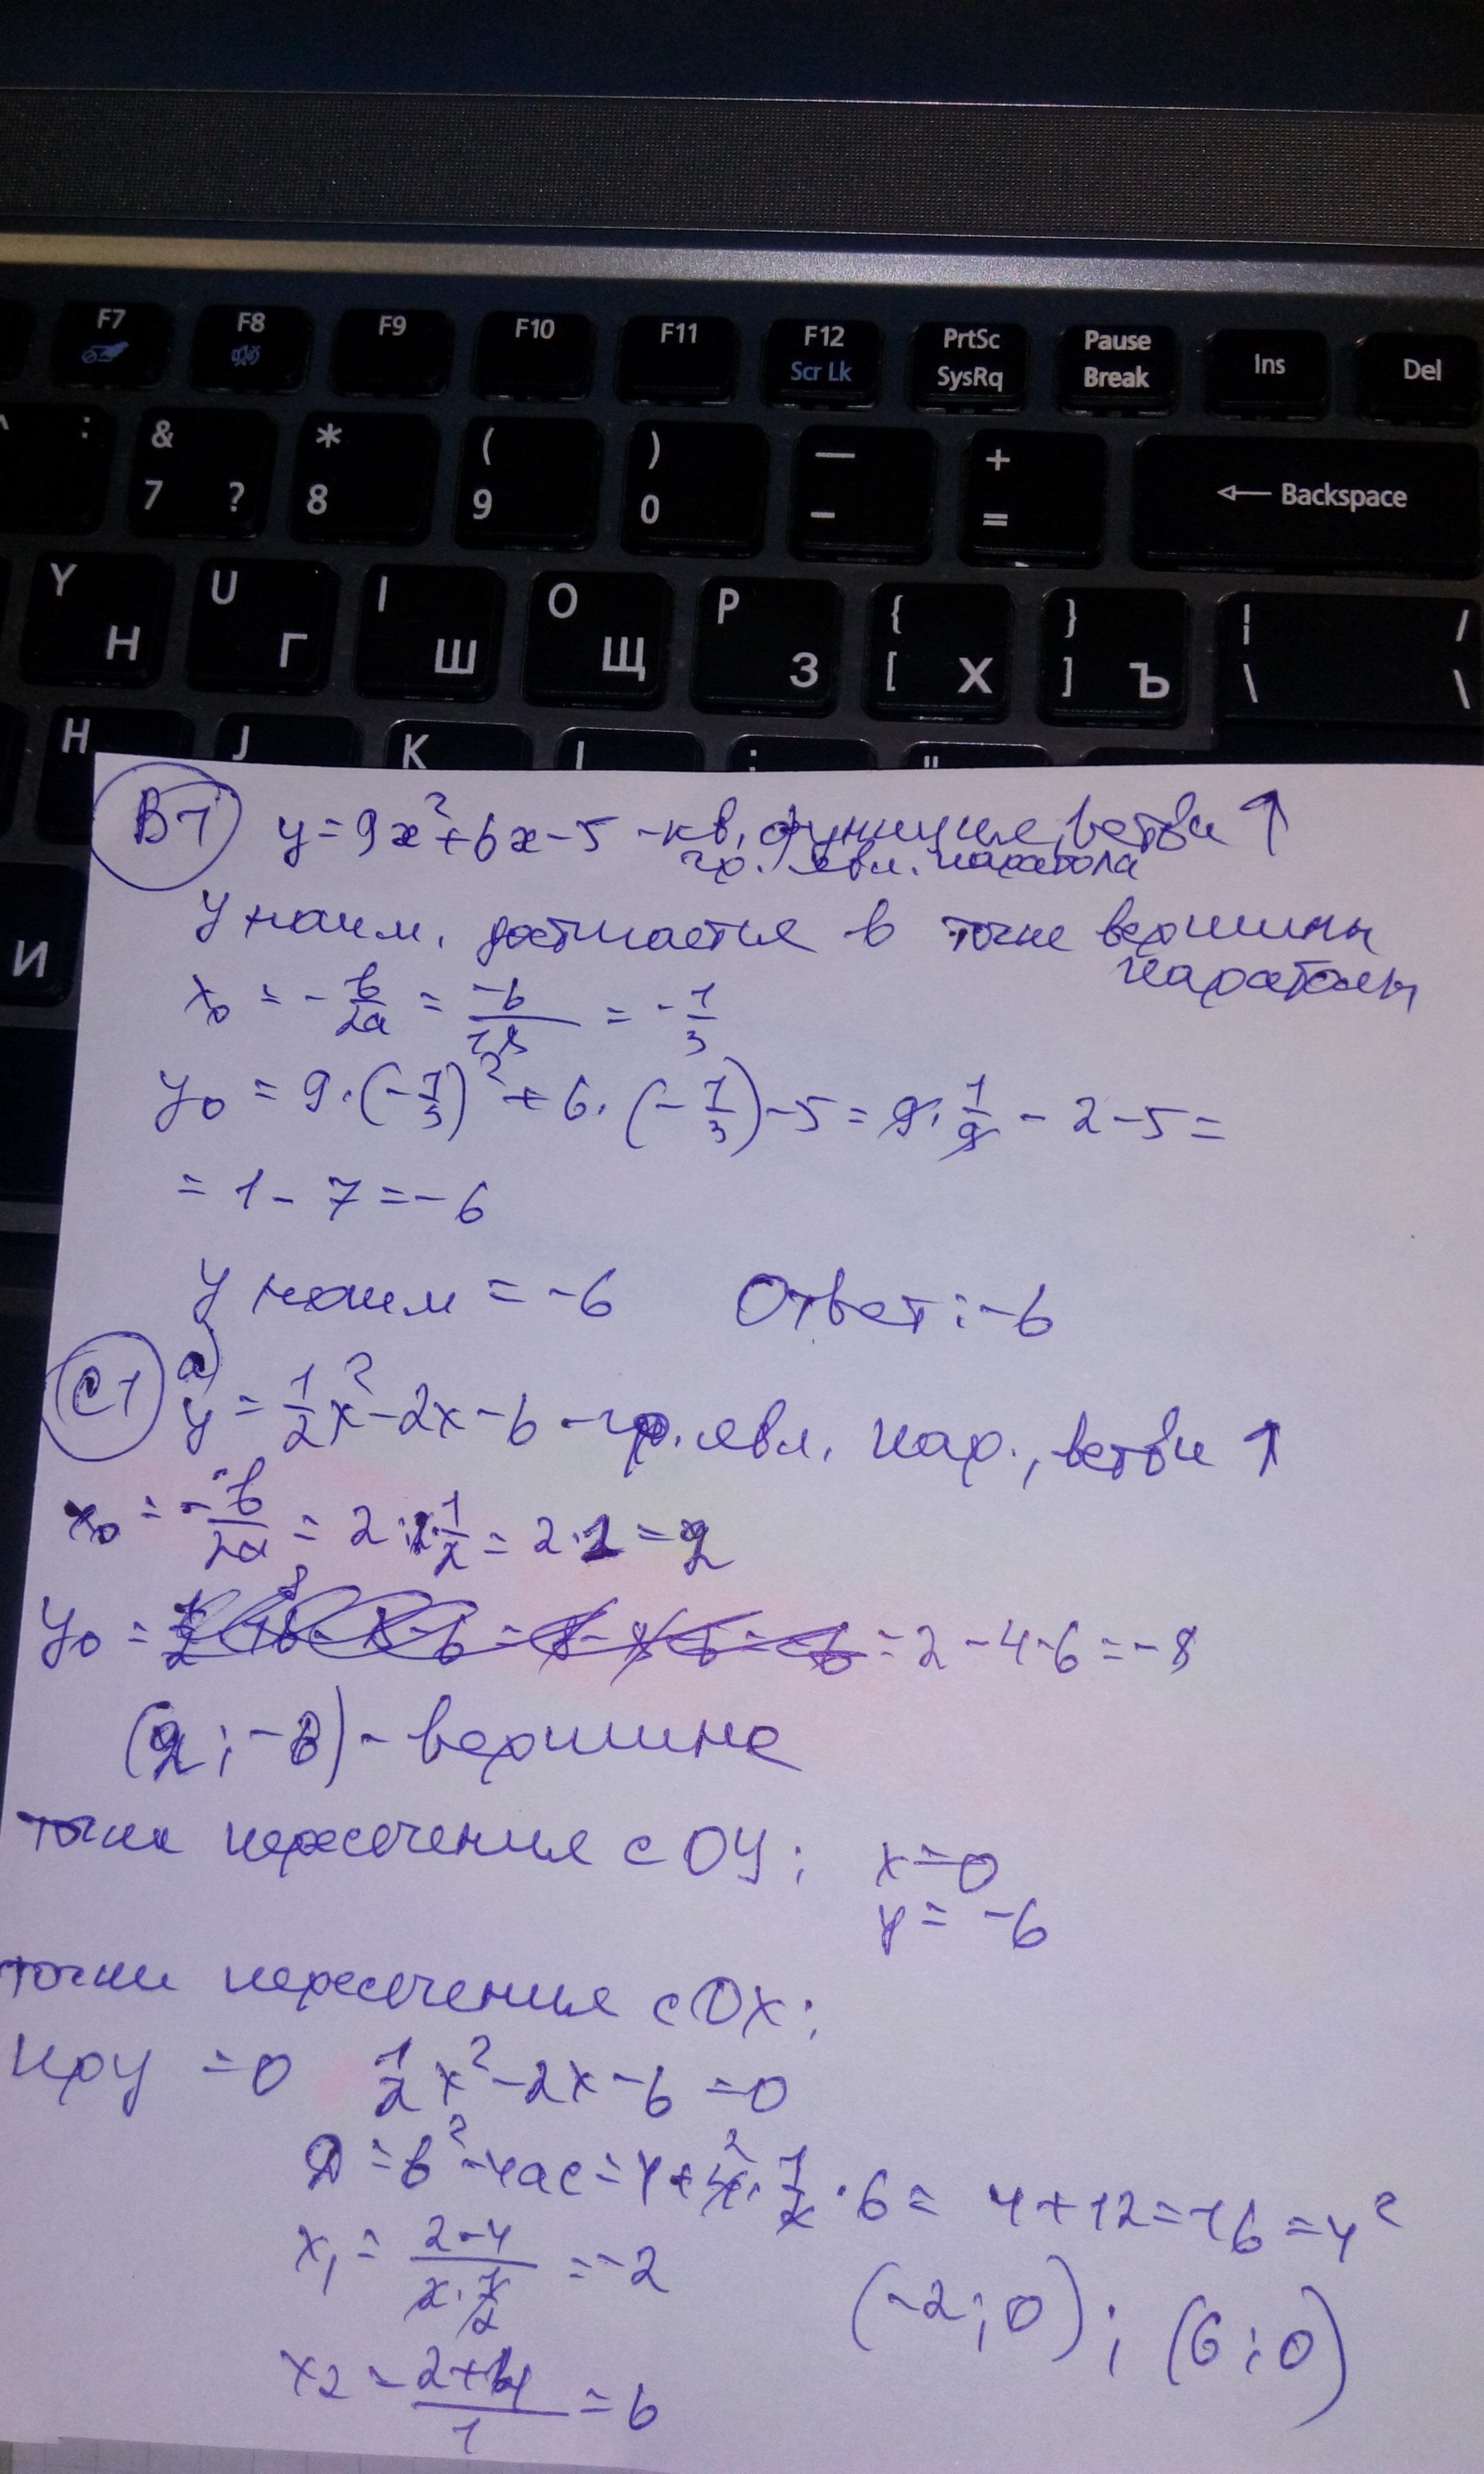 F7 F8 F9 F10 F11 F12 PrtSc Pause Ins Del
Scr Lk SysRq Break
: & * ( ) — + Backspace
7 ? 8 9 0 - =
Y U I O P { } ¦ /
Н Г Ш Щ З [ Х ] Ъ \ \
H J K L : "
И
В1 y=9x²+6x-5 -кв. функция, ветви ↑
гр. явл. парабола
У наим. достигается в точке вершины
параболы
x₀ = -b/2a = -6/18 = -1/3
y₀ = 9·(-1/3)² + 6·(-1/3)-5 = 9·1/9 - 2-5 =
= 1 - 7 = -6
У наим = -6 Ответ: -6
С1 а)
y = 1/2x²-2x-6 - гр. явл. пар., ветви ↑
x₀ = -b/2a = 2:2·1/2 = 2·1 = 2
y₀ = = 2-4-6 = -8
(2;-8) - вершина
точки пересечения с ОУ: x=0
y= -6
точки пересечения с ОХ:
При y =0 1/2x²-2x-6 =0
D = b²-4ac = 4+4·1/2·6 = 4+12=16=4²
x₁ = 2-4/2·1/2 = -2
(-2;0); (6;0)
x₂ = 2+4/1 = 6